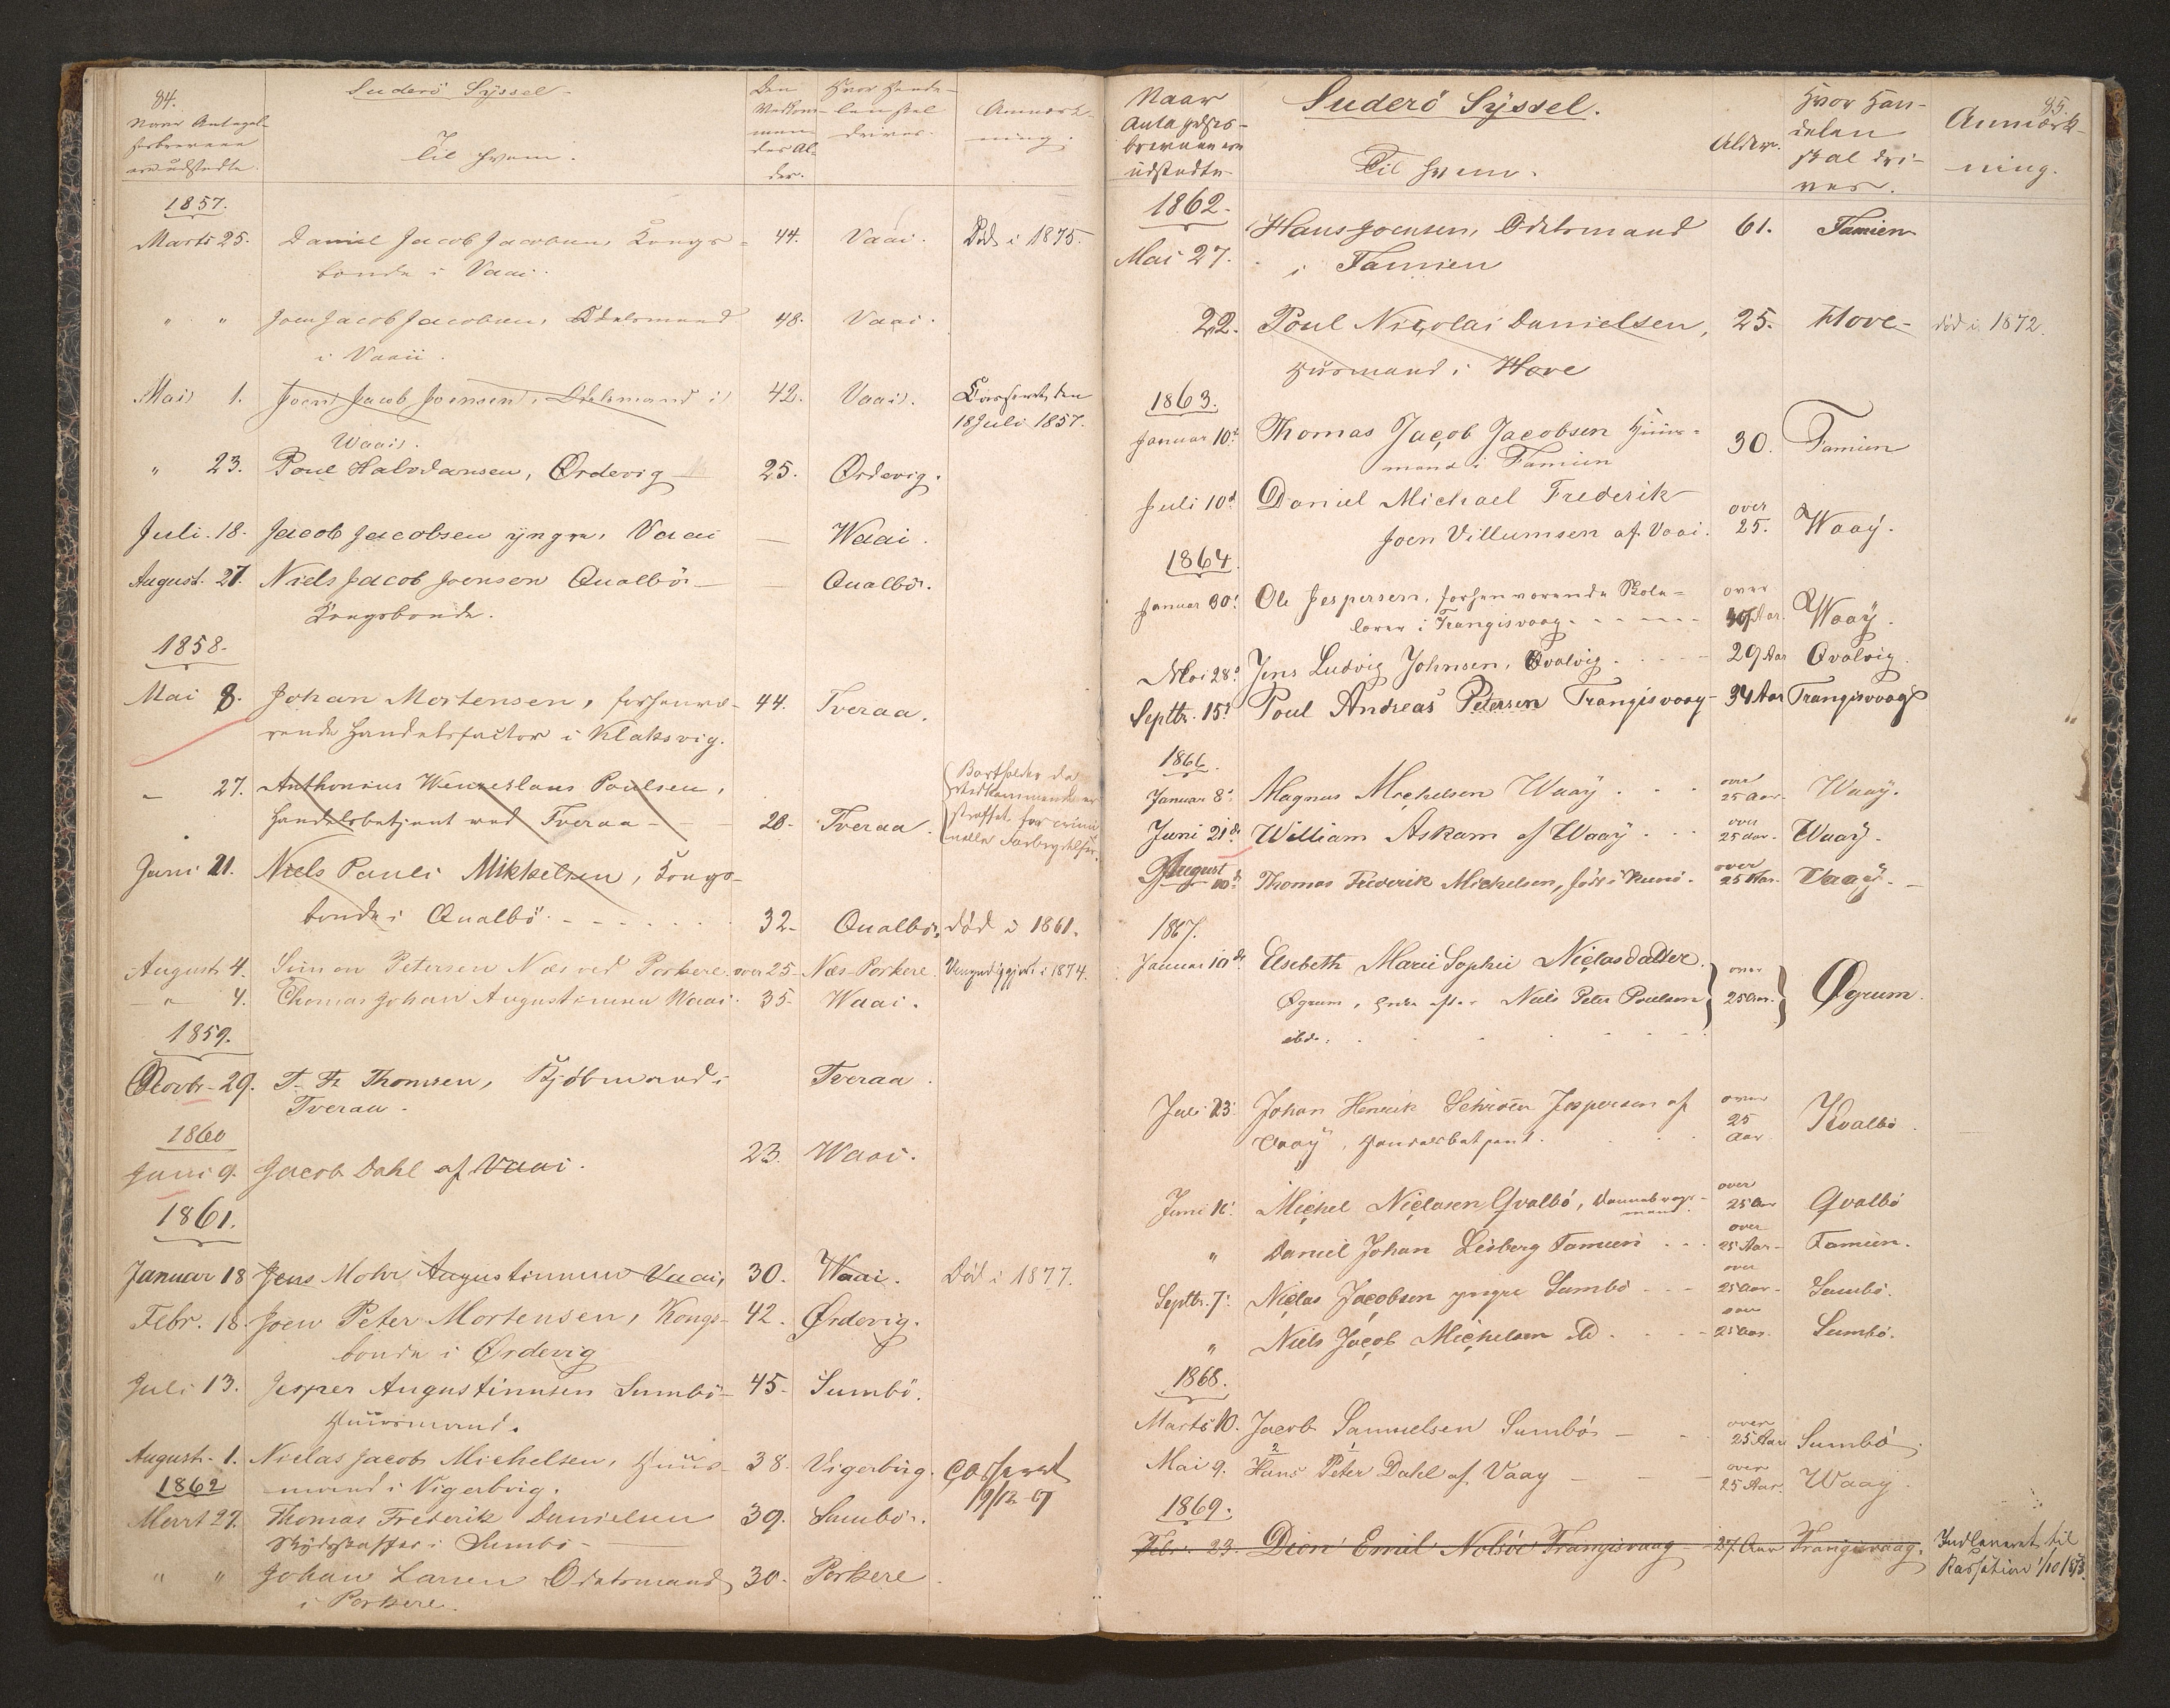 84.
Suderö Sÿssel
Naar Antagel-
sesbrevene
ere udstedte.
Til hvem.
Den
Vedkom-
men
des Al-
der.
Hvor Hande-
len skal
drives.
Anmærk-
ning.
1857.
Marts 25. Daniel Jacob Jacobsen Kongs- 44. Vaai. Död i 1875.
bonde i Vaai.
" " Joen Jacob Jacobsen, Odelsmand 48. Vaai.
i Vaaii.
Mai 1. Joen Jacob Joensen, Odelsmand i 42. Vaai. Casseret den
Waai. 18 Juli 1857.
" 23. Poul Halvdansen, Ørdevig 25. Ørdevig.
Juli. 18. Jacob Jacobsen yngre, Vaai — Waai.
August. 27. Niels Jacob Joensen Qualböi — Qualbö.
Kongsbonde.
1858.
Mai 8. Johan Mortensen, forhenvæ- 44. Tveraa.
rende Handelsfactor i Klaksvig.
" 27. Anthonius Wenzeslaus Poulsen,
Handelsbetjent ved Tveraa — 28. Tveraa.
Bortfalder da
Vedkommende er
straffet for crimi
nelle Forbrydelser.
Juni 21. Niels Pauli Mikkelsen, Kongs-
bonde i Qualbö. 32. Qualbö. död i 1861.
August. 4. Simon Petersen Næs ved Porkere. over 25 Næs-Porkere. i 1874.
" 4. Thomas Johan Augustinusen Waai. 35. Waai.
1859.
Novbr. 29. T. Fr Thomsen, Kjöbmand i Tveraa.
Tveraa.
1860
Juni 9. Jacob Dahl af Vaai. 23. Waai.
1861.
Januar 18 Jens Mohr Augustinusen Vaai, 30. Waai. Död i 1877.
Febr. 18. Joen Peter Mortensen, Kongs- 42. Ørdevig.
bonde i Ørdevig
Juli 13. Jesper Augustinusen Sumbö 45. Sumbö.
Huusmand.
August. 1. Niclas Jacob Michelsen, Huus- 38. Vigerbirg. Casseret
mand i Vigerbirg. 19/12-67
1862
Mart 27. Thomas Frederik Danielsen 39. Sumbö.
Skydsskaffer i Sumbö
" " Johan Larsen Odelsmand 30. Porkere.
i Porkere.
85.
Suderö Sÿssel.
Naar
Antagelses-
brevene ere
udstedte
Til hvem.
Alder.
Hvor Han-
delen
skal dri-
ves.
Anmærk-
ning.
1862.
Mai 27. Hans Joensen, Odelsmand 61. Famien
i Famien
22. Poul Nicolai Danielsen, 25. Hove död i 1872.
Huusmand i Hove
1863.
Januar 10d Thomas Jacob Jacobsen Huus- 30. Famien
mand i Famien
Juli 10d Daniel Michael Frederik
Joen Villumsen af Vaai. over 25. Waaÿ.
1864
Januar 30. Ole Jespersen, forhenværende Skole- over
lærer i Trangisvaag. Aar Waaÿ.
Mai 28d Jens Ludvig Johnsen, Qvalvig. 29 Aar Qvalvig.
Septbr. 15d Poul Andreas Petersen Trangisvaag 34 Aar Trangisvaag
1866.
Januar 8d Magnus Michelsen Waaÿ over 25 Aar. Waaÿ.
Juni 21d William Askam af Waaÿ over 25 Aar. Waaÿ.
August 10d Thomas Frederik Michelsen, födt i Kunö. over 25 Aar. Vaaÿ.
1867.
Januar 10d Elsebeth Marie Sophie Niclasdatter
Øgrum, Enke efter Niels Peter Poulsen over 25 Aar. Øgrum.
ibd.
Juli 23. Johan Henrik Schröter Jespersen af over 25 Aar Kvalbö
Vaaÿ, Handelsbetjent.
Juni 10. Michel Niclasen Qvalbö, Dannebrogs- over 25 Aar Qvalbö
mand.
" Daniel Johan Lisberg Famien over 25 Aar. Famien.
Septbr. 7. Niclas Jacobsen yngre Sumbö over 25 Aar. Sumbö.
" Niels Jacob Michelsen ib. over 25 Aar. Sumbö.
1868.
Marts 10. Jacob Samuelsen Sumbö — over 25 Aar Sumbö
2 1
Mai 9. Hans Peter Dahl af Vaay — over 25 Aar. Waay
1869.
Febr. 23. Dion Emil Nolsöe Trangisvaag 27 Aar Trangisvaag. Indleveret til
Kassation 1/10/